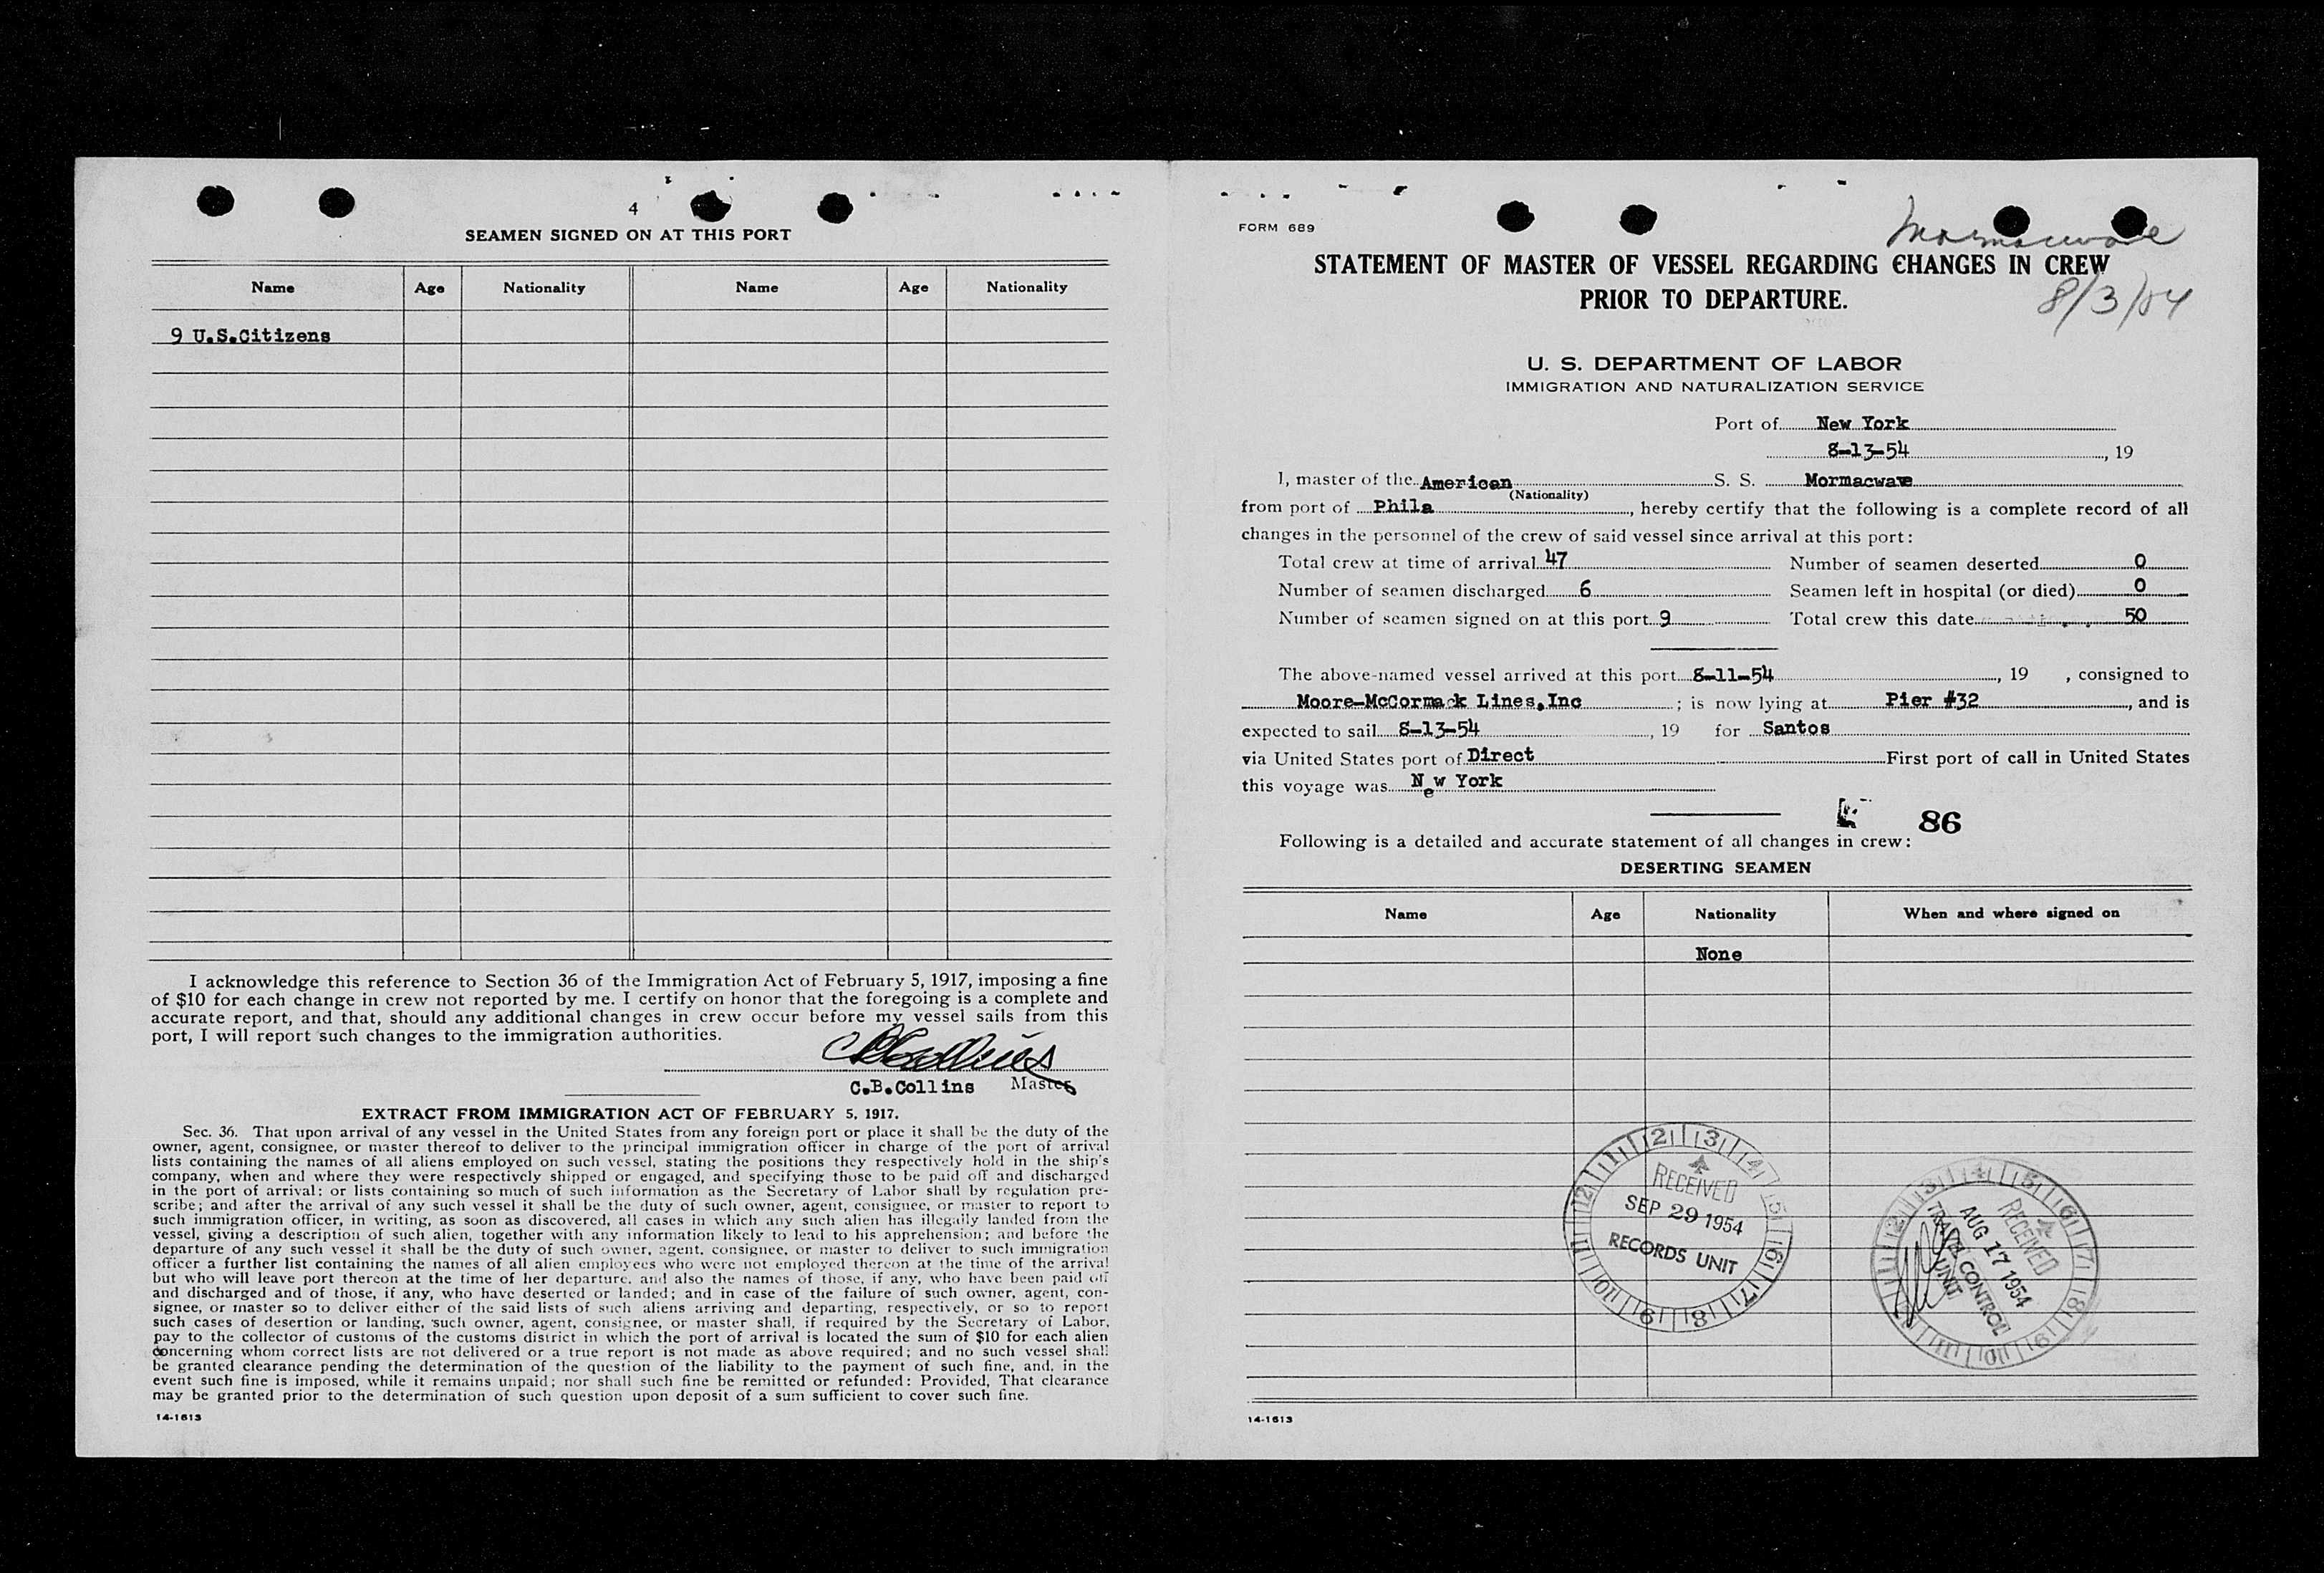 4
SEAMEN SIGNED ON AT THIS PORT
Name Age Nationality Name Age Nationality
9 U.S.Citizens
I acknowledge this reference to Section 36 of the Immigration Act of February 5, 1917, imposing a fine
of $10 for each change in crew not reported by me. I certify on honor that the foregoing is a complete and
accurate report, and that, should any additional changes in crew occur before my vessel sails from this
port, I will report such changes to the immigration authorities.
C B Collins
C.B.Collins Master
EXTRACT FROM IMMIGRATION ACT OF FEBRUARY 5, 1917.
Sec. 36. That upon arrival of any vessel in the United States from any foreign port or place it shall be the duty of the
owner, agent, consignee, or master thereof to deliver to the principal immigration officer in charge of the port of arrival
lists containing the names of all aliens employed on such vessel, stating the positions they respectively hold in the ship's
company, when and where they were respectively shipped or engaged, and specifying those to be paid off and discharged
in the port of arrival; or lists containing so much of such information as the Secretary of Labor shall by regulation pre-
scribe; and after the arrival of any such vessel it shall be the duty of such owner, agent, consignee, or master to report to
such immigration officer, in writing, as soon as discovered, all cases in which any such alien has illegally landed from the
vessel, giving a description of such alien, together with any information likely to lead to his apprehension; and before the
departure of any such vessel it shall be the duty of such owner, agent, consignee, or master to deliver to such immigration
officer a further list containing the names of all alien employees who were not employed thereon at the time of the arrival
but who will leave port thereon at the time of her departure, and also the names of those, if any, who have been paid off
and discharged and of those, if any, who have deserted or landed; and in case of the failure of such owner, agent, con-
signee, or master so to deliver either of the said lists of such aliens arriving and departing, respectively, or so to report
such cases of desertion or landing, such owner, agent, consignee, or master shall, if required by the Secretary of Labor,
pay to the collector of customs of the customs district in which the port of arrival is located the sum of $10 for each alien
concerning whom correct lists are not delivered or a true report is not made as above required; and no such vessel shall
be granted clearance pending the determination of the question of the liability to the payment of such fine, and, in the
event such fine is imposed, while it remains unpaid; nor shall such fine be remitted or refunded: Provided, That clearance
may be granted prior to the determination of such question upon deposit of a sum sufficient to cover such fine.
14-1613
FORM 689
Mormacwave
STATEMENT OF MASTER OF VESSEL REGARDING CHANGES IN CREW
PRIOR TO DEPARTURE.
8/3/54
U. S. DEPARTMENT OF LABOR
IMMIGRATION AND NATURALIZATION SERVICE
Port of New York
8-13-54, 19
I, master of the American S. S. Mormacwave
(Nationality)
from port of Phila, hereby certify that the following is a complete record of all
changes in the personnel of the crew of said vessel since arrival at this port:
Total crew at time of arrival 47 Number of seamen deserted 0
Number of seamen discharged 6 Seamen left in hospital (or died) 0
Number of seamen signed on at this port 9 Total crew this date 50
The above-named vessel arrived at this port 8-11-54, 19 , consigned to
Moore-McCormack Lines,Inc ; is now lying at Pier #32, and is
expected to sail 8-13-54, 19 for Santos
via United States port of Direct First port of call in United States
this voyage was New York
86
Following is a detailed and accurate statement of all changes in crew:
DESERTING SEAMEN
Name Age Nationality When and where signed on
None
12 1 2 3 4 5 6 7 8 9 10 11
RECEIVED
SEP 29 1954
RECORDS UNIT
2 3 4 5 6 7 8 9 10 11
RECEIVED
AUG 17 1954
TRAVEL CONTROL
UNIT
14-1613